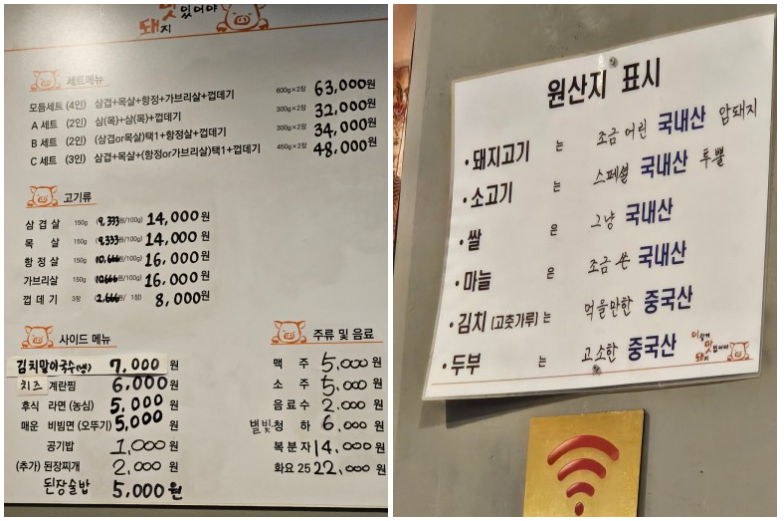 맛있어야
돼지
세트메뉴
모듬세트 (4인) 삼겹+목살+항정+가브리살+껍데기 600g×2장 63,000원
A 세트 (2인) 삼(목)+삼(목)+껍데기 300g×2장 32,000원
B 세트 (2인) (삼겹or목살)택1+항정살+껍데기 300g×2장 34,000원
C 세트 (3인) 삼겹+목살+(항정or가브리살)택1+껍데기 450g×2장 48,000원
고기류
삼겹살 150g (9,333원/100g) 14,000원
목살 150g (9,333원/100g) 14,000원
항정살 150g (10,666원/100g) 16,000원
가브리살 150g (10,666원/100g) 16,000원
껍데기 3장 (2,666원/ 1장) 8,000원
사이드 메뉴
김치말이국수(냉) 7,000 원
치즈 계란찜 6,000 원
후식 라면 (농심) 5,000 원
매운 비빔면 (오뚜기) 5,000 원
공기밥 1,000 원
(추가) 된장찌개 2,000 원
된장술밥 5,000원
주류 및 음료
맥주 5,000원
소주 5,000원
음료수 2,000원
별빛청하 6,000원
복분자 14,000원
화요 25 22,000원
원산지 표시
・돼지고기 는 조금 어린 국내산 암돼지
・소고기 는 스페셜 국내산 투뿔
・쌀 은 그냥 국내산
・마늘 은 조금 쏜 국내산
・김치 (고춧가루) 는 먹을만한 중국산
・두부 는 고소한 중국산